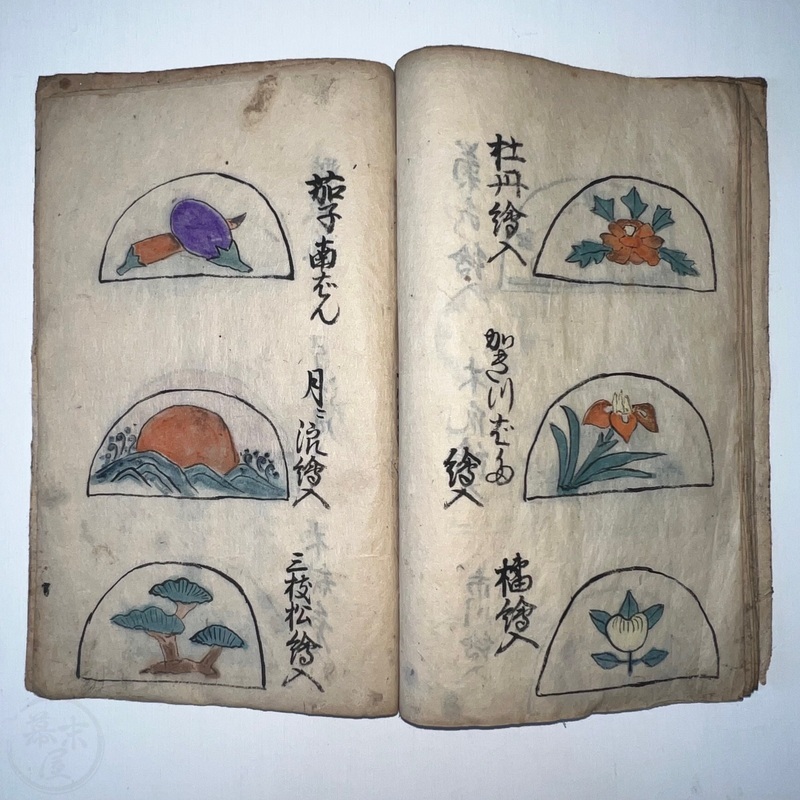 杜丹繪入
かき川ばた
繪入
橘繪入
茄子南ばん
月ニ浪繪入
三枝松繪入
幕末屋